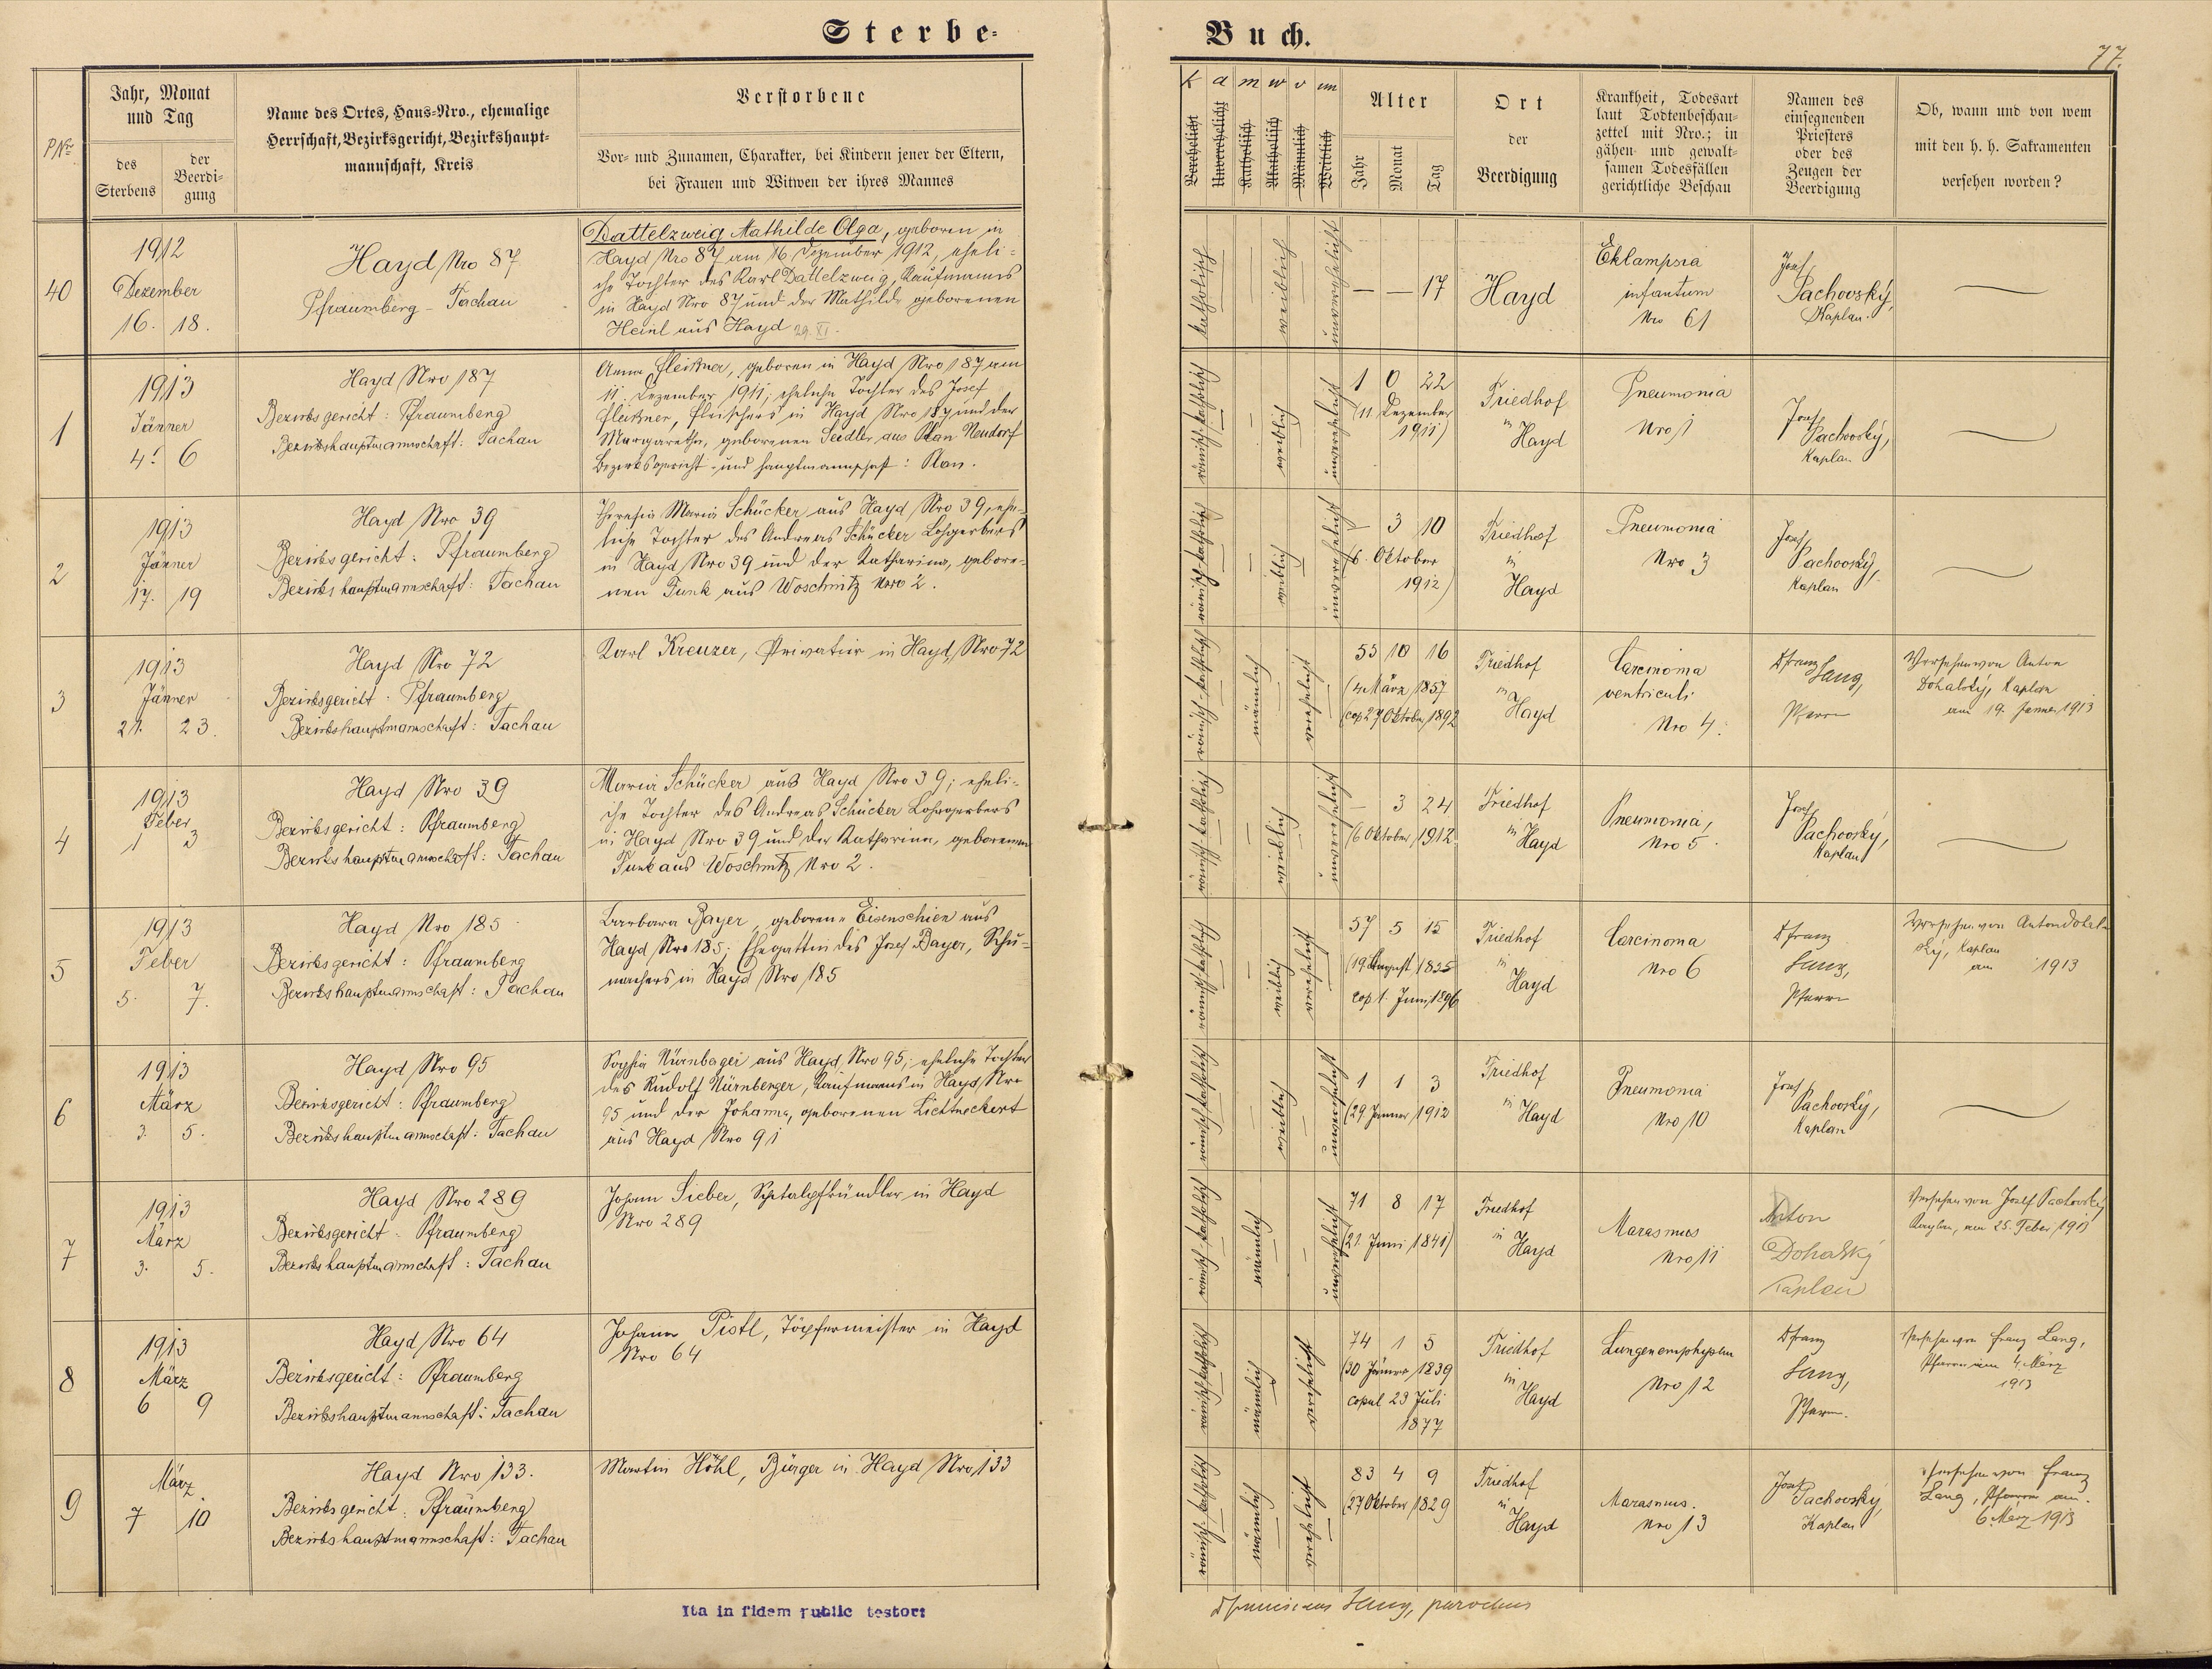 Sterbe-
Buch.
77.
PNr
Jahr, Monat
und Tag
des
Sterbens
der
Beerdi-
gung
Name des Ortes, Haus-Nro., ehemalige
Herrschaft, Bezirksgericht, Bezirkshaupt-
mannschaft, Kreis
Verstorbene
Vor- und Zunamen, Charakter, bei Kindern jener der Eltern,
bei Frauen und Witwen der ihres Mannes
k a m w v un
Verehelicht
Unverehelicht
Katholisch
Akatholisch
Männlich
Weiblich
Alter
Jahr
Monat
Tag
Ort
der
Beerdigung
Krankheit, Todesart
laut Todtenbeschau-
zettel mit Nro.; in
gähen und gewalt-
samen Todesfällen
gerichtliche Beschau
Namen des
einsegnenden
Priesters
oder des
Zeugen der
Beerdigung
Ob, wann und von wem
mit den h. h. Sakramenten
versehen worden?
40
1912
Dezember
16. 18.
Hayd Nro 87
Pfraumberg - Tachau
Dattelzweig Mathilde Olga, geboren in
Hayd Nro 87 am 16 Dezember 1912, eheli-
che Tochter des Karl Dattelzweig, Kaufmanns
in Hayd Nro 87 und der Mathilde geborenen
Heinl aus Hayd 29. XI.
katholisch
weiblich
unverehelicht
— — 17
Hayd
Eklampsia
infantum
Nro 61
Josef
Pachovský,
Kaplan.
1
1913
Jänner
4. 6
Hayd Nro 187
Bezirksgericht: Pfraumberg
Bezirkshauptmannschaft: Tachau
Anna Fleißner, geboren in Hayd Nro 187 am
11. Dezember 1911; eheliche Tochter des Josef
Fleißner, Fleischers in Hayd Nro 187 und der
Margaretha, geborenen Seidler aus Plan Neudorf
Bezirksgericht- und hauptmannschaft: Plan.
römisch-katholisch
weiblich
unverehelicht
1 0 22
(11. Dezember
1911)
Friedhof
in
Hayd
Pneumonia
Nro 1
Josef
Pachovský,
Kaplan
2
1913
Jänner
17. 19
Hayd Nro 39
Bezirksgericht: Pfraumberg
Bezirkshauptmannschaft: Tachau
Theresia Maria Schücker aus Hayd Nro 39, ehe-
liche Tochter des Andreas Schücker Lohgerbers
in Hayd Nro 39 und der Katharina, gebore-
nen Funk aus Woschnitz Nro 2.
römisch-katholisch
weiblich
unverehelicht
— 3 10
(6. Oktober
1912)
Friedhof
in
Hayd
Pneumonia
Nro 3
Josef
Pachovský,
Kaplan
3
1913
Jänner
21. 23.
Hayd Nro 72
Bezirksgericht: Pfraumberg
Bezirkshauptmannschaft: Tachau
Karl Kreuzer, Privatier in Hayd, Nro 72
römisch-katholisch
männlich
verehelicht
55 10 16
(4. März 1857
(cop 27 Oktober 1892
Friedhof
in
Hayd
Carcinoma
ventriculi
Nro 4.
Franz
Lang,
Pfarrer
Versehen von Anton
Dohalský, Kaplan
am 19. Jänner 1913
4
1913
Feber
1 3
Hayd Nro 39
Bezirksgericht: Pfraumberg
Bezirkshauptmannschaft: Tachau
Maria Schücker aus Hayd Nro 39; eheli-
che Tochter des Andreas Schücker Lohgerbers
in Hayd Nro 39 und der Katharina, geborenen
Funk aus Woschnitz Nro 2.
römisch-katholisch
weiblich
unverehelicht
— 3 24
(6 Oktober 1912
Friedhof
in
Hayd
Pneumonia,
Nro 5.
Josef
Pachovský,
Kaplan
5
1913
Feber
5. 7.
Hayd Nro 185
Bezirksgericht: Pfraumberg
Bezirkshauptmannschaft: Tachau
Barbara Bayer, geborene Eisenschien aus
Hayd Nro 185; Ehegattin des Josef Bayer, Schu-
machers in Hayd Nro 185
römisch-katholisch
weiblich
verehelicht
57 5 15
(19 August 1855
cop 1. Juni 1896
Friedhof
in
Hayd
Carcinoma
Nro 6
Franz
Lang,
Pfarrer
Versehen von Anton Dohal-
ský, Kaplan
am 1913
6
1913
März
3. 5.
Hayd Nro 95
Bezirksgericht: Pfraumberg
Bezirkshauptmannschaft: Tachau
Sophia Nürnberger aus Hayd, Nro 95; eheliche Tochter
des Rudolf Nürnberger, Kaufmanns in Hayd, Nro
95 und der Johanna, geborenen Lichtneckert
aus Hayd Nro 91
römisch-katholisch
weiblich
unverehelicht
1 1 3
(29 Jänner 1912
Friedhof
in
Hayd
Pneumonia
Nro 10
Josef
Pachovský,
Kaplan
7
1913
März
3. 5.
Hayd Nro 289
Bezirksgericht: Pfraumberg
Bezirkshauptmannschaft: Tachau
Johann Sieber, Spitalpfründler in Hayd
Nro 289
römisch-katholisch
männlich
unverehelicht
71 8 17
(21. Juni 1841)
Friedhof
in
Hayd
Marasmus
Nro 11
Anton
Dohalský
Kaplan
Versehen von Josef Pachovský
Kaplan, am 25. Feber 1913
8
1913
März
6 9
Hayd Nro 64
Bezirksgericht: Pfraumberg
Bezirkshauptmannschaft: Tachau
Johann Pistl, Töpfermeister in Hayd
Nro 64
römisch-katholisch
männlich
verehelicht
74 1 5
(30 Jänner 1839
copul 23 Juli
1877
Friedhof
in
Hayd
Lungenemphysem
Nro 12
Franz
Lang,
Pfarrer.
Versehen von Franz Lang,
Pfarrer am 4. März
1913
9
März
7 10
Hayd Nro 133.
Bezirksgericht: Pfraumberg
Bezirkshauptmannschaft: Tachau
Martin Höhl, Bürger in Hayd Nro 133
römisch-katholisch
männlich
verehelicht
83 4 9
(27 Oktober 1829
Friedhof
in
Hayd
Marasmus.
Nro 13
Josef
Pachovský,
Kaplan
Versehen von Franz
Lang, Pfarrer am
6 März 1913
Ita in fidem public testor:
Franciscus Lang, parochus